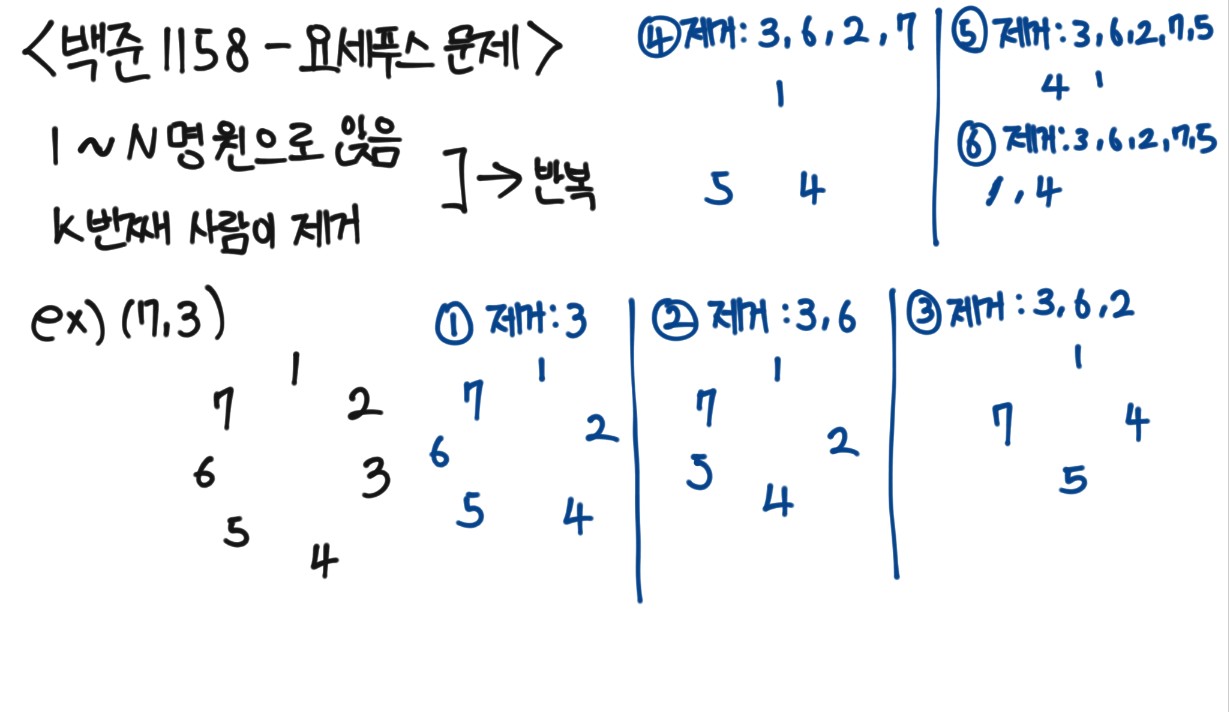 <백준 1158 - 요세푸스 문제>
1 ~ N명 원으로 앉음
K번째 사람이 제거
] → 반복
ex) (7,3)
1
7 2
6 3
5
4
① 제거:3
1
7
2
6
5 4
② 제거:3,6
1
7
2
5
4
③ 제거:3,6,2
1
7 4
5
④ 제거:3,6,2,7
1
5 4
⑤ 제거:3,6,2,7,5
4 1
⑥ 제거:3,6,2,7,5
1,4